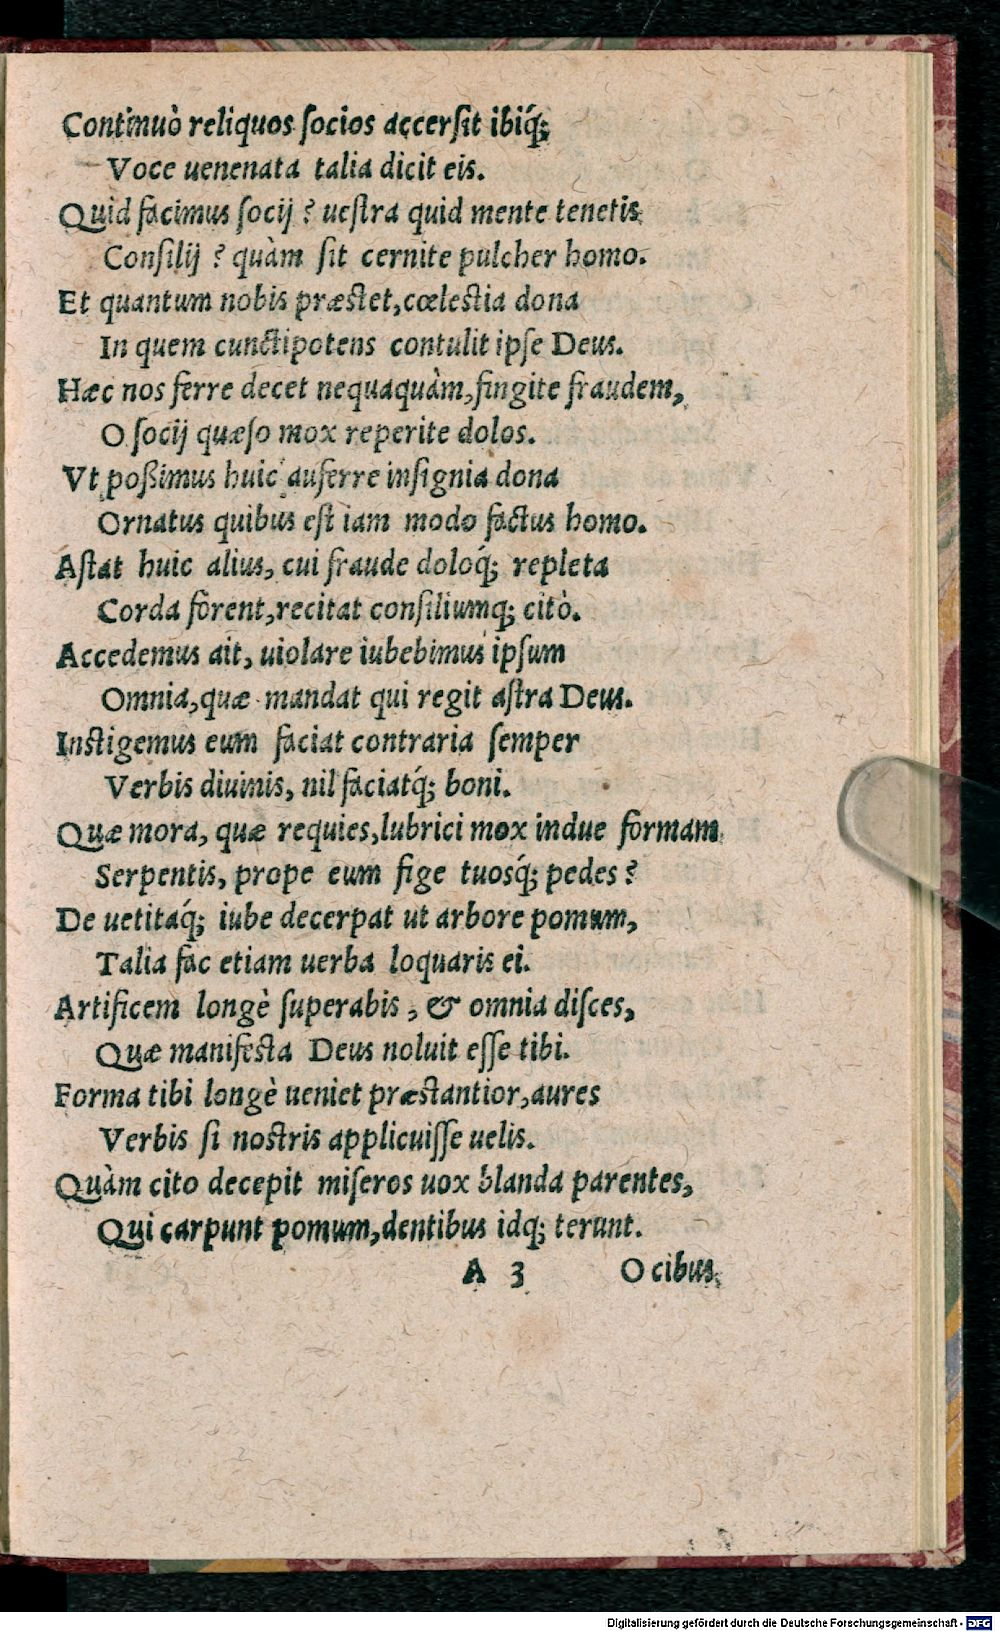 Continuò reliquos ſocios accerſit ibiq́;
Voce uenenata talia dicit eis.
Quid facimus ſocij ? ueſtra quid mente tenetis
Conſilij ? quàm ſit cernite pulcher homo.
Et quantum nobis præſtet, cœleſtia dona
In quem cunctipotens contulit ipſe Deus.
Hæc nos ferre decet nequaquàm, fingite fraudem,
O ſocij quæſo mox reperite dolos.
Vt poßimus huic auferre inſignia dona
Ornatus quibus eſt iam modo factus homo.
Aſtat huic alius, cui fraude doloq́; repleta
Corda forent, recitat conſiliumq; citò.
Accedemus ait, uiolare iubebimus ipſum
Omnia, quæ mandat qui regit aſtra Deus.
Inſtigemus eum faciat contraria ſemper
Verbis diuinis, nil faciatq́; boni.
Quæ mora, quæ requies, lubrici mox indue formam
Serpentis, prope eum fige tuosq́; pedes ?
De uetitaq́; iube decerpat ut arbore pomum,
Talia fac etiam uerba loquaris ei.
Artificem longè ſuperabis, & omnia diſces,
Quæ manifeſta Deus noluit eſſe tibi.
Forma tibi longè ueniet præſtantior, aures
Verbis ſi noſtris applicuiſſe uelis.
Quàm cito decepit miſeros uox blanda parentes,
Qui carpunt pomum, dentibus idq; terunt.
A 3 O cibus
Digitalisierung gefördert durch die Deutsche Forschungsgemeinschaft - DFG